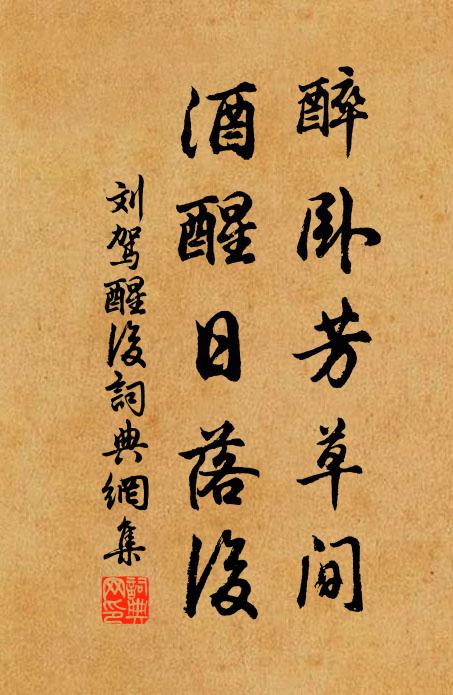 醉卧芳草间
酒醒日落後
刘驾醒後詞典網集
詞典
网印